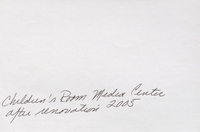 Children's Room Media Center
after renovation 2005